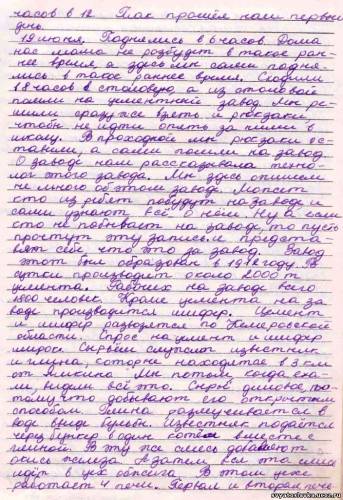 часов в 12. Так прошёл наш первый
день.
19 июня. Поднялись в 6 часов. Дома
нас мама не разбудит в такое ран-
нее время, а здесь мы сами подня-
лись в такое раннее время. Сходили
в 8 часов в столовую, а из столовой
пошли на цементный завод. Мы ре-
шили сразу же взять и рюкзаки,
чтобы не идти опять за ними в
школу. В проходной мы рюкзаки ос-
тавили, а сами пошли на завод.
О заводе нам рассказывала техно-
лог этого завода. Мы здесь опишем
не много об этом заводе. Может
кто из ребят побудут на заводе и
сами узнают всё о нём. Ну а если
кто не побывает на заводе, то пусть
прочтут эту запись и предста-
вят себе что это за завод. Завод
этот был образован в 1912 году. В
сутки производит около 2000 т
цемента. Рабочих на заводе всего
1800 человек. Кроме цемента на за-
воде производится шифер. Цемент
и шифер развозятся по Кемеровской
области. Спрос на цемент и шифер
широк. Сырьём служит известняк
и глина, которые находятся в 3 км
от Яшкина. Мы потом, когда
видели всё это. Сырьё дешёвое, по-
тому что добывают его открытым
способом. Глина размучивается в
воде в виде бульбы. Известняк подаётся
через бункер в один вместе с
глиной. В эту же смесь добавляют
А затем вся эта смесь
идёт в цех обжига. В этом цехе
работает 4 печи. Первая и вторая печи
svyatoslovka.ucoz.ru